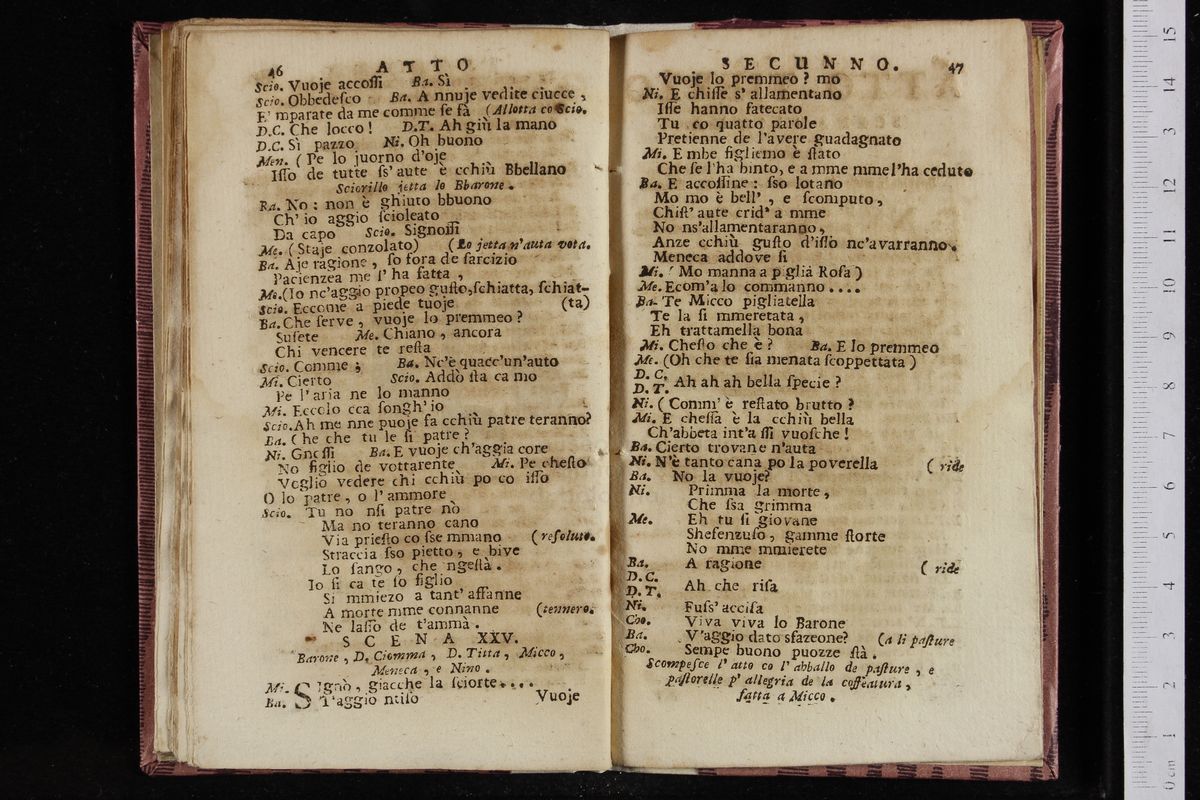 46 ATTO
Scio. Vuoje accossì Ba. Sì
Scio. Obbedesco Ba. A nnuje vedite ciucce,
E' mparate da me comme se fà (Allotta co Scio.
D.C. Che locco! D.T. Ah giù la mano
D.C. Sì pazzo Ni. Oh buono
Men. (Pe lo juorno d'oje
Isso de tutte ss'aute è cchiù Bbellano
Sciorillo jetta lo Bbarone.
Ba. No: non è ghiuto bbuono
Ch'io aggio scioleato
Da capo Scio. Signossì
Me. (Staje conzolato) (Lo jetta n'auta vota.
Ba. Aje ragione, so fora de sarcizio
Pacienzea me l'ha fatta,
Me.(Io nc'aggio propeo gusto, schiatta, schiat-
Scio. Eccome a piede tuoje (ta)
Ba. Che serve, vuoje lo premmeo?
Susete Me. Chiano, ancora
Chi vencere te resta
Scio. Comme; Ba. Nc'è quacc'un'auto
Mi. Cierto Scio. Addò sta ca mo
Pe l'aria ne lo manno
Mi. Eccolo cca songh'io
Scio. Ah me nne puoje fa cchiù patre teranno?
Ba. Che che tu le si patre?
Ni. Gnessì Ba. E vuoje ch'aggia core
No figlio de vottarente Mi. Pe chesto
Voglio vedere chi cchiù po co isso
O lo patre, o l'ammore
Scio. Tu no nsi patre nò
Ma no teranno cano
Via priesto co sse mmano (resoluto.
Straccia sso pietto, e bive
Lo sango, che ngestà.
Io si ca te so figlio
Si mmiezo a tant'affanne
A morte mme connanne (tennero.
Ne lasso de t'ammà.
SCENA XXV.
Barone, D. Ciomma, D. Titta, Micco,
Meneca, e Nino.
Mi. SIgnò, giacche la sciorte....
Ba. T'aggio ntiso Vuoje
SECUNNO. 47
Vuoje lo premmeo? mo
Ni. E chisse s'allamentano
Isse hanno fatecato
Tu co quatto parole
Pretienne de l'avere guadagnato
Mi. E mbe figliemo è stato
Che se l'ha binto, e a mme mme l'ha ceduto
Ba. E accossine: sso lotano
Mo mo è bell', e scomputo,
Chist'aute crid' a mme
No ns'allamentaranno,
Anze cchiù gusto d'isso nc'avarranno.
Meneca addove si
Mi. (Mo manna a piglià Rosa)
Me. Ecom'a lo commanno....
Ba. Te Micco pigliatella
Te la si mmeretata,
Eh trattamella bona
Mi. Chesto che è? Ba. E lo premmeo
Me. (Oh che te sia menata scoppettata)
D. C.
D. T. Ah ah ah bella specie?
Ni. (Comm'è restato brutto?
Mi. E chessa è la cchiù bella
Ch'abbeta int'a ssi vuosche!
Ba. Cierto trovane n'auta
Ni. N'è tanto cana po la poverella (ride
Ba. No la vuoje?
Ni. Primma la morte,
Che ssa grimma
Me. Eh tu si giovane
Shefenzuso, gamme storte
No mme mmierete
Ba. A ragione (ride
D. C.
D. T. Ah che risa
Ni. Fuss'accisa
Cho. Viva viva lo Barone
Ba. V'aggio dato sfazeone? (a li pasture
Cho. Sempe buono puozze stà.
Scompesce l'atto co l'abballo de pasture, e
pastorelle p'allegria de la coffeatura,
fatta a Micco.
15
14
13
12
11
10
9
8
7
6
5
4
3
2
1
0 cm